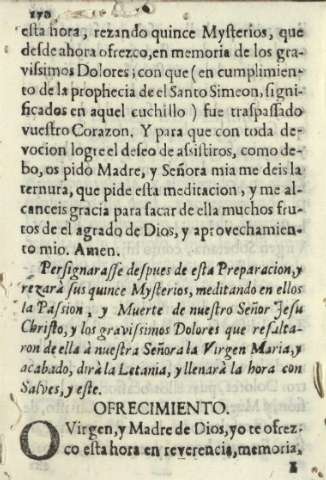 170
esta hora, rezando quince Mysterios, que
desde ahora ofrezco, en memoria de los gra-
vissimos Dolores; con que (en cumplimien-
to de la prophecia de el Santo Simeon, signi-
ficados en aquel cuchillo) fue traspassado
vuestro Corazon. Y para que con toda de-
vocion logre el deseo de assistiros, como de-
bo, os pido Madre, y Señora mia me deis la
ternura, que pide esta meditacion, y me al-
canceis gracia para sacar de ella muchos fru-
tos de el agrado de Dios, y aprovechamien-
to mio. Amen.
Persignarasse despues de esta Preparacion, y
rezarà sus quince Mysterios, meditando en ellos
la Passion, y Muerte de nuestro Señor Jesu
Christo, y los gravissimos Dolores que resalta-
ron de ella à nuestra Señora la Virgen Maria, y
acabado, dirà la Letania, y llenarà la hora con
Salves, y este.
OFRECIMIENTO.
O Virgen, y Madre de Dios, yo te ofrez-
co esta hora en reverencia, memoria,